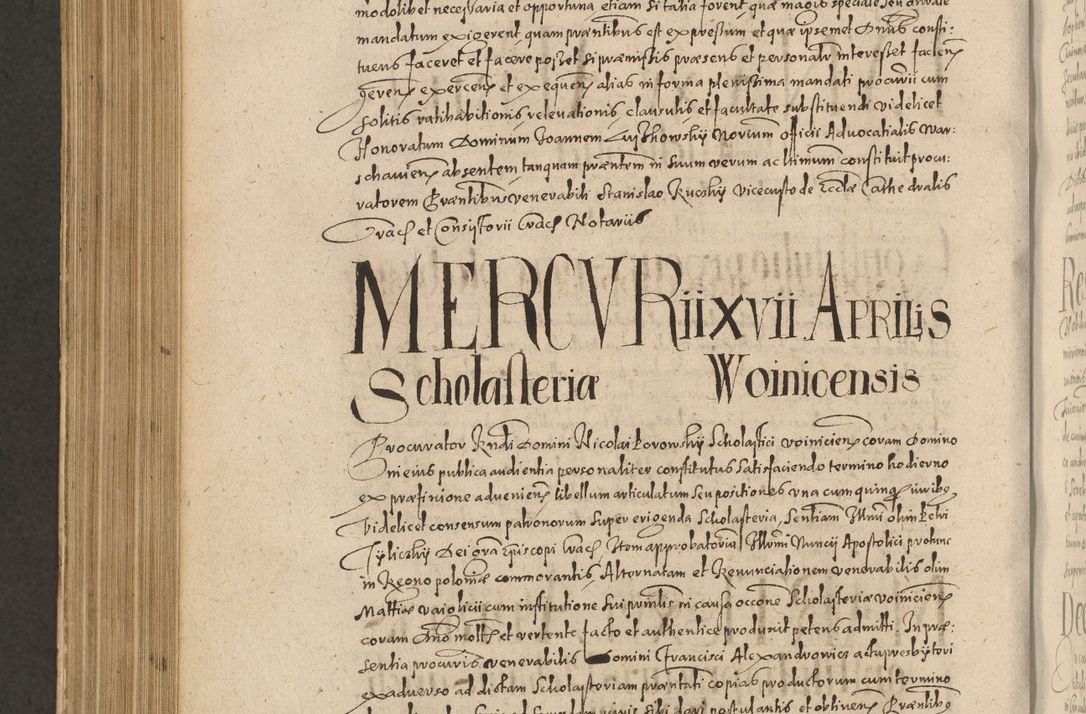 modolibet necessaria et opportuna etiam si talia forent quæ magis speciale seu
mandatum exigerent quam præntibus est expressum et quæ ipsemet Dnus consti:
tuens faceret et facere posset si præmissis præsens et personalr interesset facien
geren exercen et exequen alias in forma plenissima mandati procurii cum
solitis ratihabitionis relevationis clausulis et facultate substituendi videlicet
Honoratum Dominum Joannem Norium officii Advocatialis War:
schavien absentem tanquam præntem in suum verum ac ltimum constituit procu:
ratorem Præntibus venerabili Stanislao Kuczky Vicecustode Ecclæ Cathedralis
Crac et Consistorii Crac Notariis
MERCVRii xvii APRILIS
Scholasteria Woinicensis
Procurator Rndi Domini Nicolai Borowsky Scholastici voinicien coram Domino
in eius publica audientia personaliter constitutus satisfaciendo termino hodierno
ex præfinione advenien libellum articulatum seu positiones una cum quinq iuribus
videlicet consensum patronorum super erigenda Scholasteria, Sentiam Illmi olim Petri
Tyliczky Dei gra Episcopi Crac Item approbatoriam Illmi Nuncii Apostolici protunc
in Regno poloniæ commorantis, Alternatam et Renunciationem venerabilis olim
Matthiæ vaiolicii cum institutione sui prinlis in causa occone Scholasteriæ voinicien
coram Dno et vertente facto et authentice produxit petens admitti. In præ:
sentia procuris venerabilis Domini Francisci Alexandrowicz actu presbyteri
ex adverso ad dictam Scholasteriam præntati copias productorum cum termino
sibi dari postulantis et obtinen Præntibus